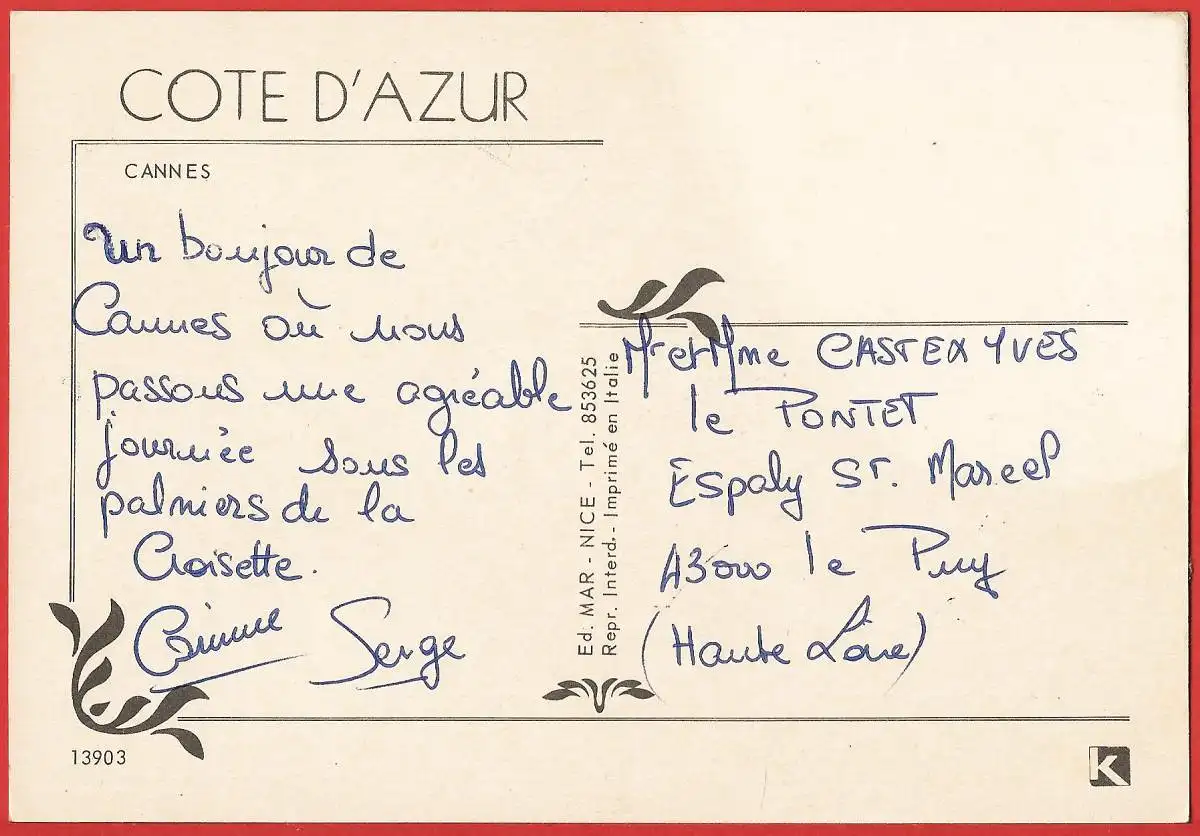 COTE D'AZUR
CANNES
Un bonjour de
Cannes où nous
passons une agréable
journée sous les
palmiers de la
Croisette.
Corinne Serge
Ed. MAR - NICE - Tel. 853625
Repr. Interd. - Imprimé en Italie
Mr et Mme CASTEX YVES
le PONTET
Espaly ST. Marcel
43000 le Puy
(Haute Loire)
13903
K